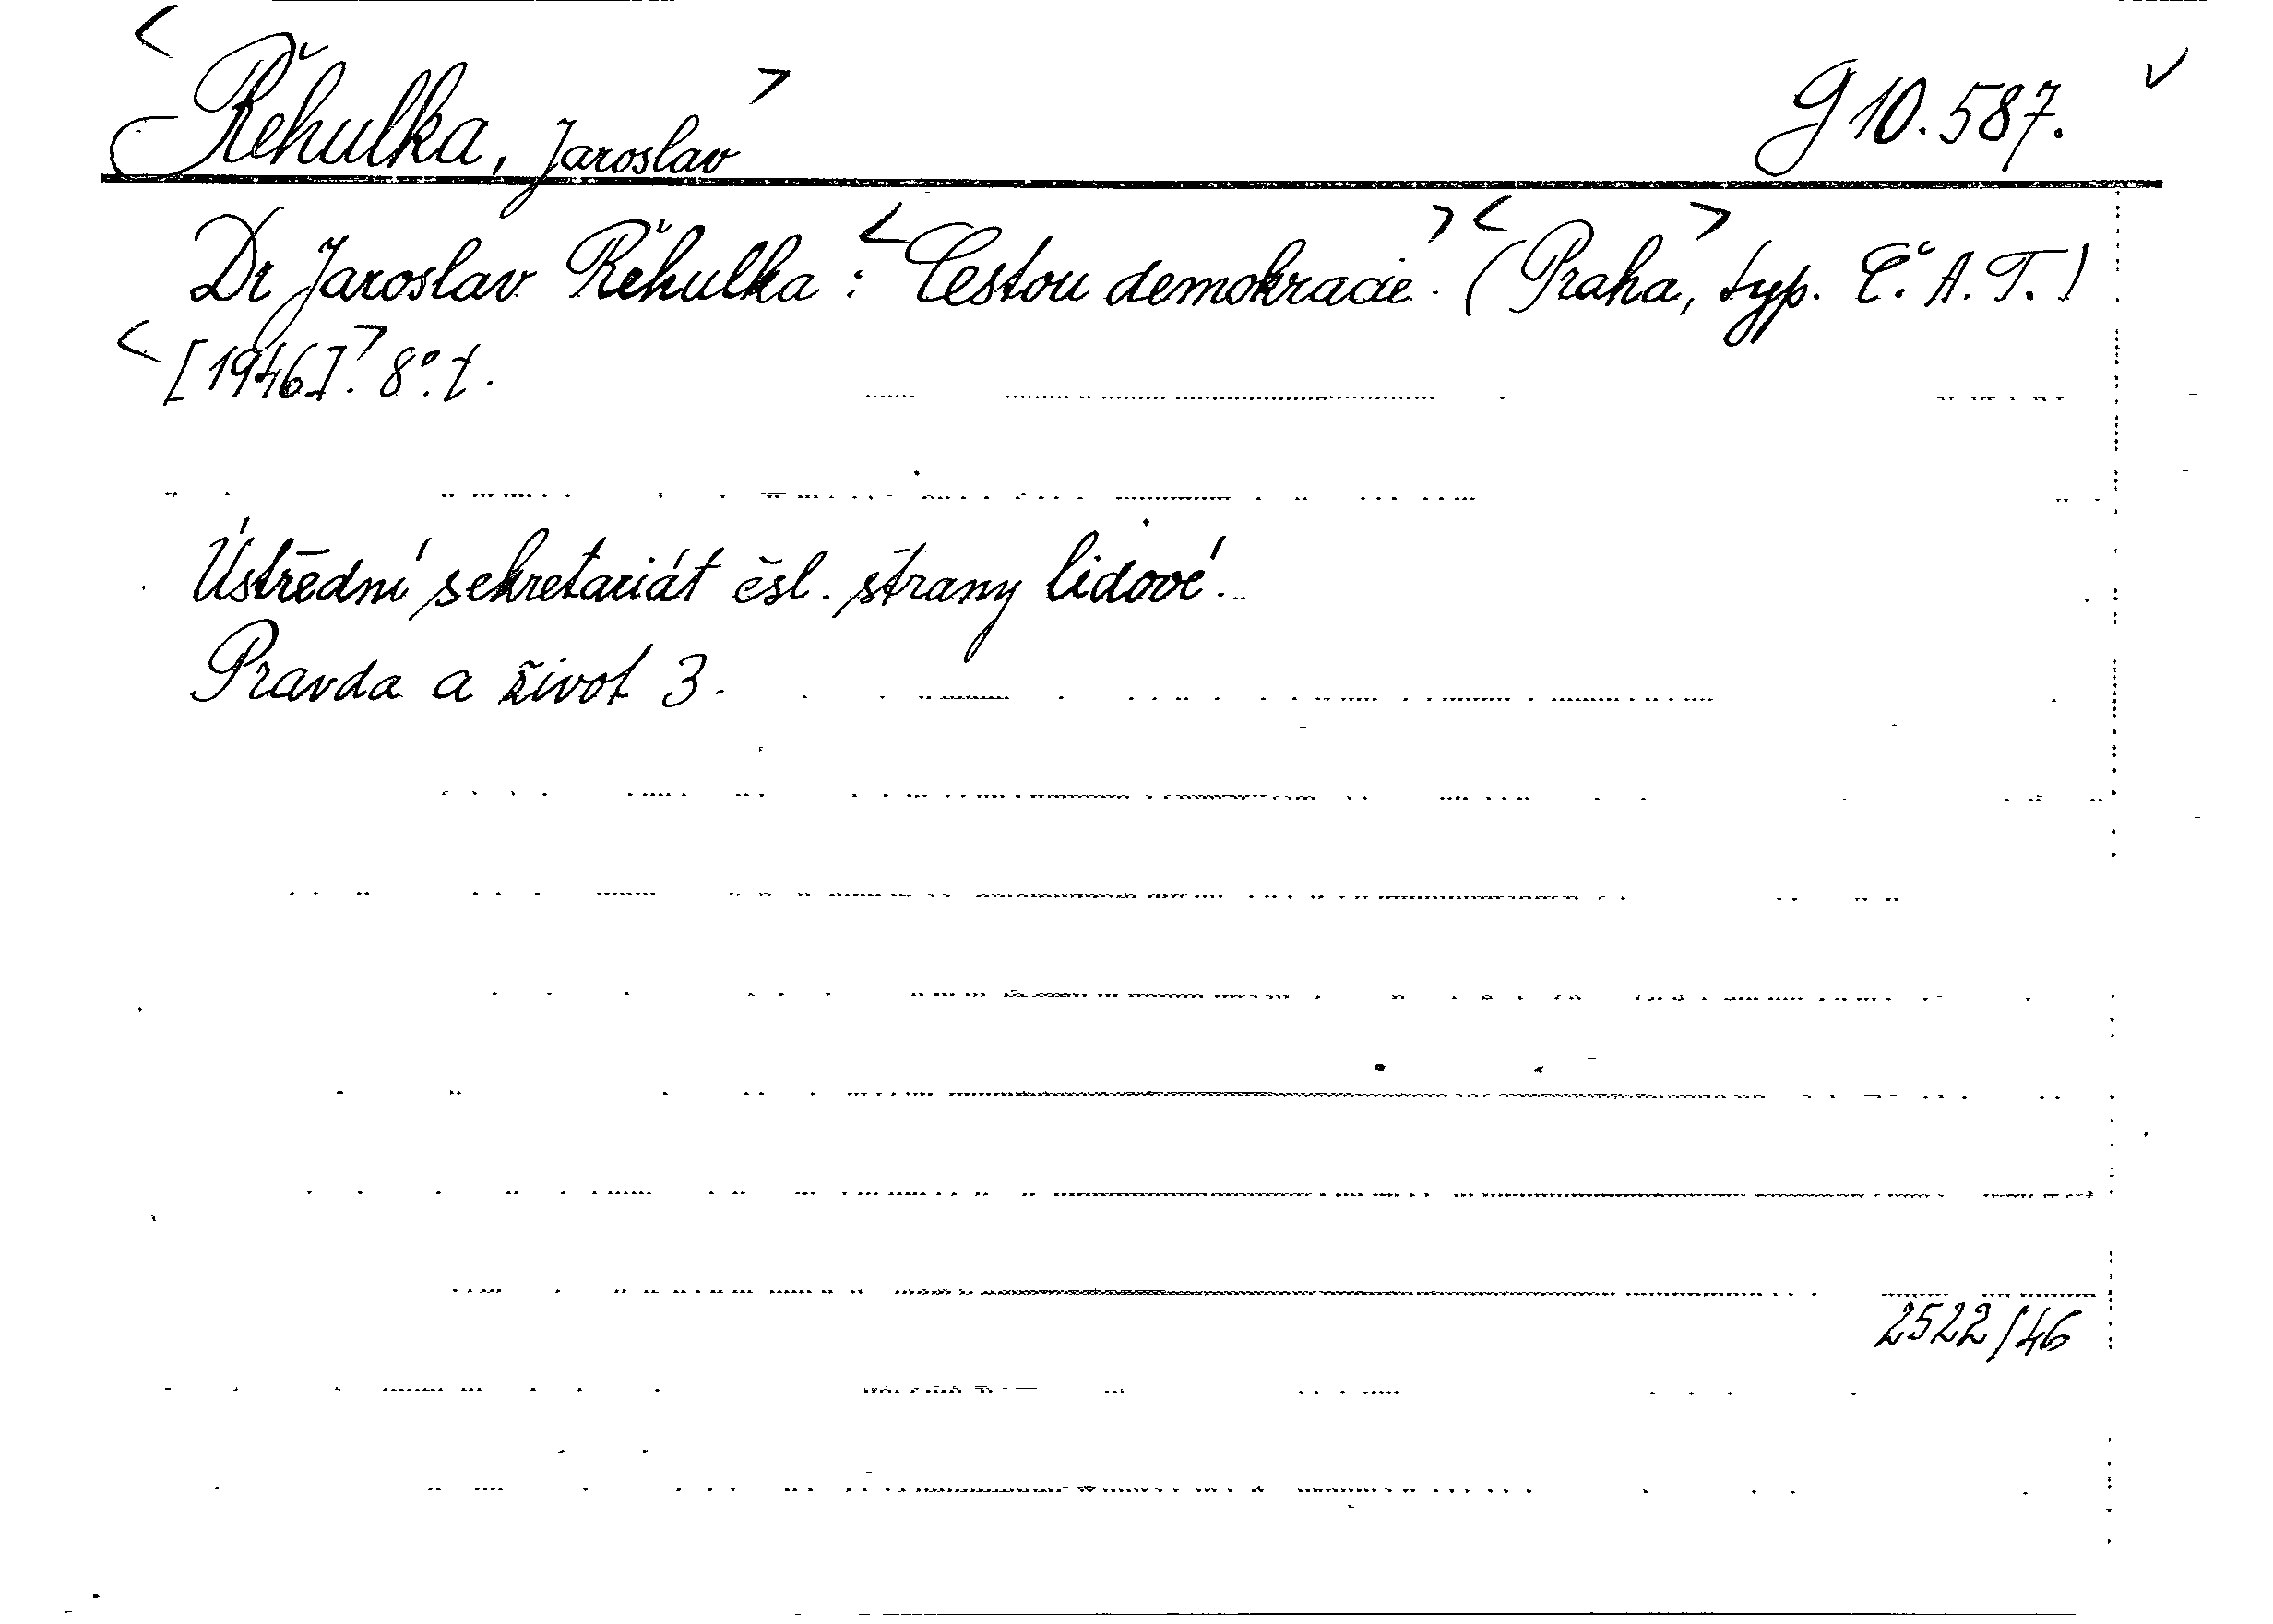 < Řehulka, Jaroslav > g 10.587. v
Dr Jaroslav Řehulka : < Cestou demokracie. > < (Praha, > typ. Č. A. T.)
< [1946]. > 8°. t.
Ústřední sekretariát čsl. strany lidové.
Pravda a život 3.
2522/46